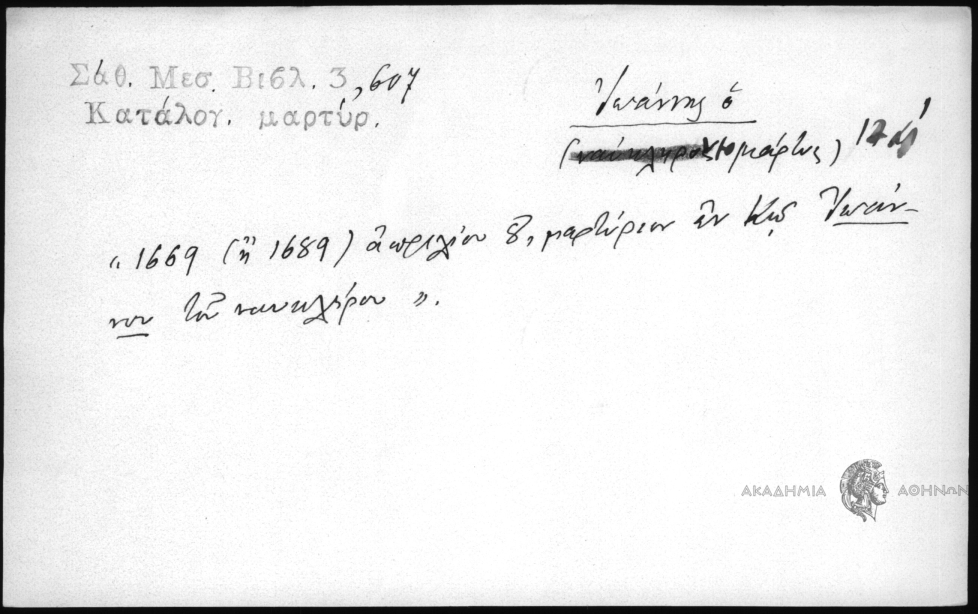 Σάθ. Μεσ. Βιβλ. 3, 607
Κατάλογ. μαρτύρ.
Ἰωάννης ὁ
νεομάρτυς)
" 1669 (ἢ 1689) ἀπριλίου 8, μαρτύριον ἐν Κῷ Ἰωάν-
νου τοῦ ναυκλήρου ".
ΑΚΑΔΗΜΙΑ ΑΘΗΝΩΝ